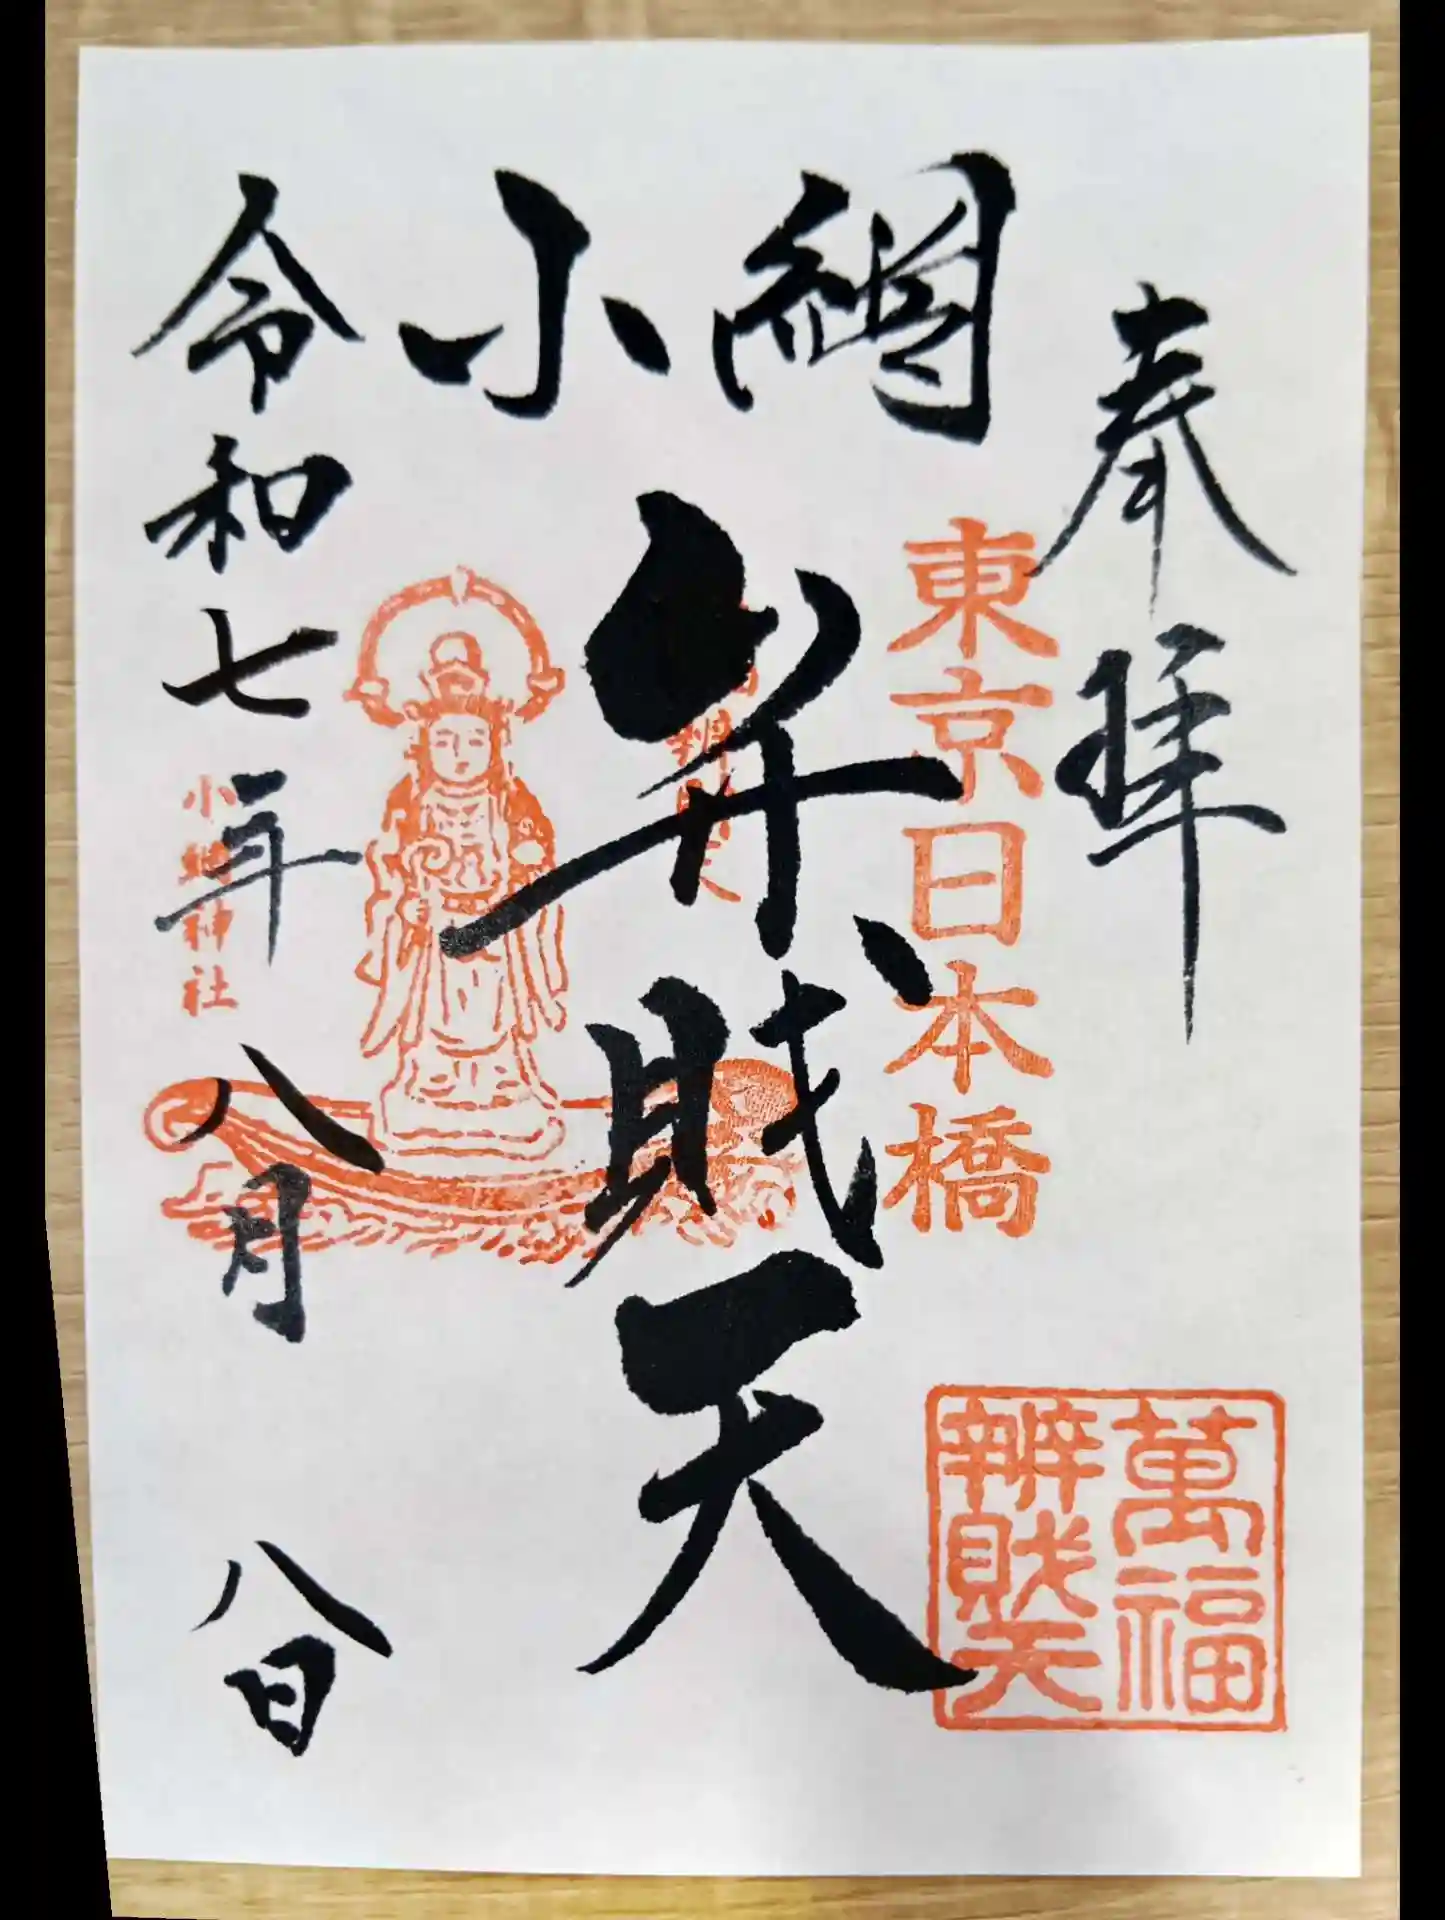 奉拝
東京日本橋
萬福
辨財天
小網
弁財天
小網神社
令和七年八月八日